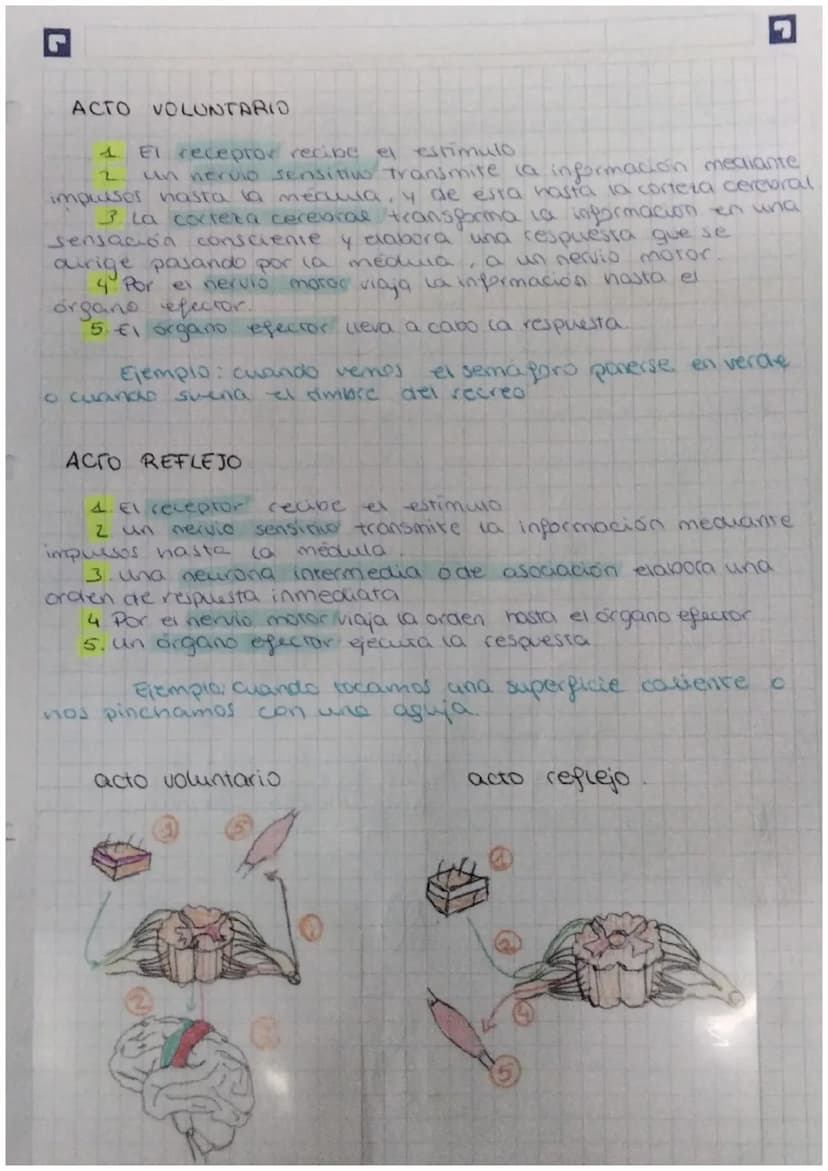 ACTO VOLUNTARIO
1 El receptor recibe el estímulo
2 un nervio sensitivo transmite la información mediante
impulsos hasta la médula, y de esta hasta la corteza cerebral
3 La corteza cerebral transforma la información en una
sensación consciente y elabora una respuesta que se
dirige pasando por la médula, a un nervio motor.
4 Por el nervio motor viaja la información hasta el
órgano efector.
5. El órgano efector lleva a cabo la respuesta.
Ejemplo: cuando vemos el semáforo ponerse en verde
o cuando suena el timbre del recreo
ACTO REFLEJO
1. El receptor recibe el estímulo
2 un nervio sensitivo transmite la información mediante
impulsos hasta la médula.
3. una neurona intermedia o de asociación elabora una
orden de respuesta inmediata
4 Por el nervio motor viaja la orden hasta el órgano efector
5. un órgano efector ejecuta la respuesta
Ejemplo: cuando tocamos una superficie caliente o
nos pinchamos con una aguja.
acto voluntario
acto reflejo.
1
5
2
1
2
4
5